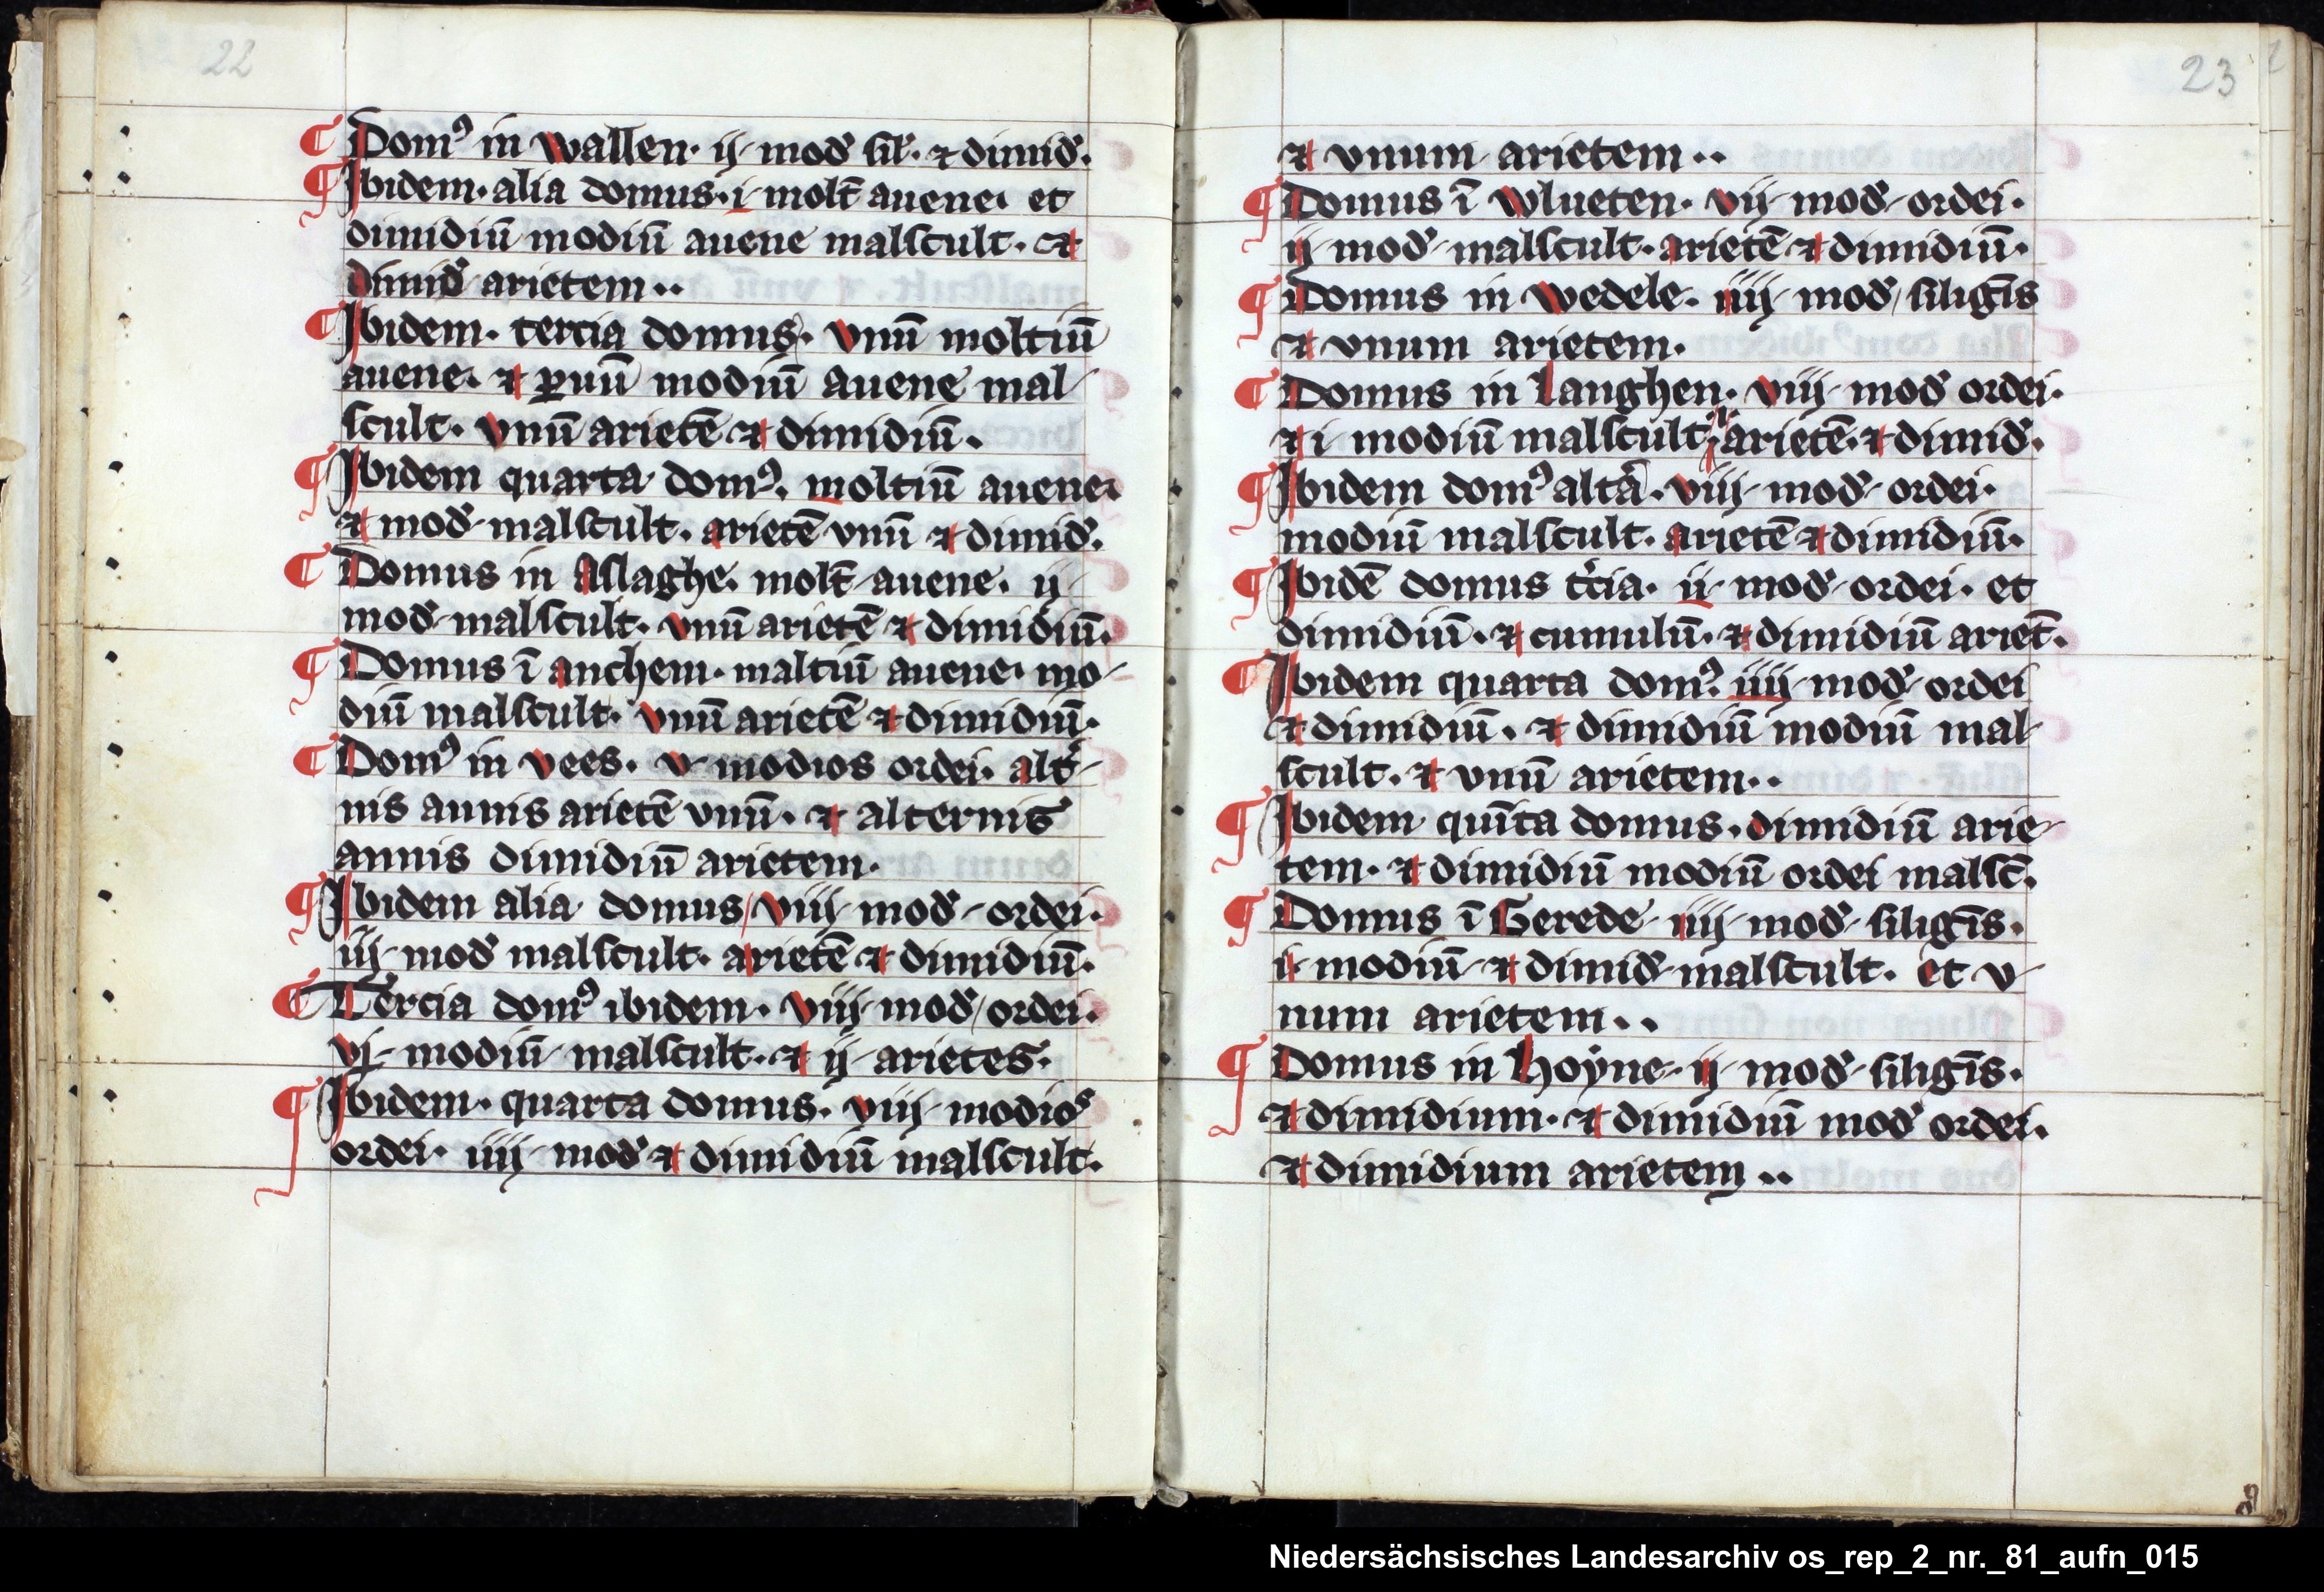 22
¶ Domꝰ in wallen· ij· mod̛ sil̛· ⁊ dimid̛.
¶ Ibidem· alia domus· i· molt̄ auene· et
dimidiū modiū auene malscult· ⁊
dimid̛ arietem··
¶ Ibidem· tercia domus· vnū moltiū
auene· ⁊ ꝑuū modiū auene mal-
scult· vnū arietē ⁊ dimidiū.
¶ Ibidem quarta domꝰ. moltiū auene·
⁊ mod̛ malscult. arietē vnū ⁊ dimid̛.
¶ Domus in Aslaghe. molt̄ auene. ij·
mod̛ malscult. vnū arietē ⁊ dimidiū.
¶ Domus ī anchem· maltiū auene· mo-
diū malscult· vnū arietē ⁊ dimidiū.
¶ Domꝰ in vees· v· modios ordei· alt̛-
nis annis arietē vnū· ⁊ alternis
annis dimidiū arietem·
¶ Ibidem alia domus / viij mod̛ ordei·
iij· mod̛ malscult· arietē ⁊ dimidiū.
¶ Tercia domꝰ ibidem· viij mod̛ / ordei·
vj· modiū malscult· ⁊ ij· arietes·
¶ Ibidem· quarta domus· viij modios
ordei· iiij· mod̛ ⁊ dimidiū malscult.
23
⁊ vnum arietem··
¶ Domus ī wlueten· vij· mod̛ ordei·
ij· mod̛ malscult· arietē ⁊ dimidiū·
¶ Domus in wedele· iiij· mod̛ / siligīs
⁊ vnum arietem·
¶ Domus in langhen· viij· mod̛ ordei·
⁊ i· modiū malscult· arietē· ⁊ dimid̛.
¶ Ibidem domꝰ altā· viij· mod̛ ordei·
modiū malscult· arietē ⁊ dimidiū·
¶ Ibidē domus t̛cia· ii· mod̛ ordei· et
dimidiū· ⁊ cumulū· ⁊ dimidiū ariet̄.
¶ Ibidem quarta domꝰ. iiij· mod̛ ordei
⁊ dimidiū. ⁊ dimidiū modiū mal-
scult. ⁊ vnū arietem··
¶ Ibidem quīta domus. dimidiū arie-
tem· ⁊ dimidiū modiū ordei malsc̄.
¶ Domus ī Gerede· iiij· mod̛ siligīs·
i· modiū ⁊ dimid̛ malscult. et v-
num arietem··
¶ Domus in hoẏne· ij· mod̛ siligīs·
⁊ dimidium· ⁊ dimidiū mod̛ ordei·
⁊ dimidium arietem··
Niedersächsisches Landesarchiv os_rep_2_nr._81_aufn_015